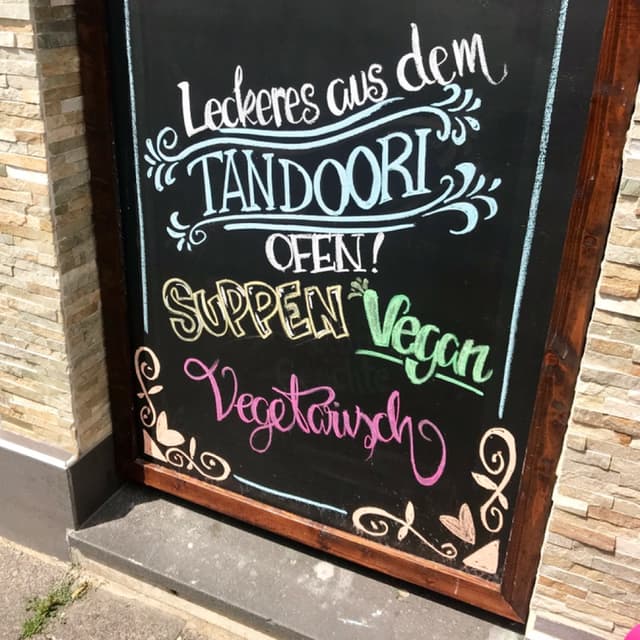 Leckeres aus dem
TANDOORI
OFEN!
SUPPEN Vegan
Vegetarisch